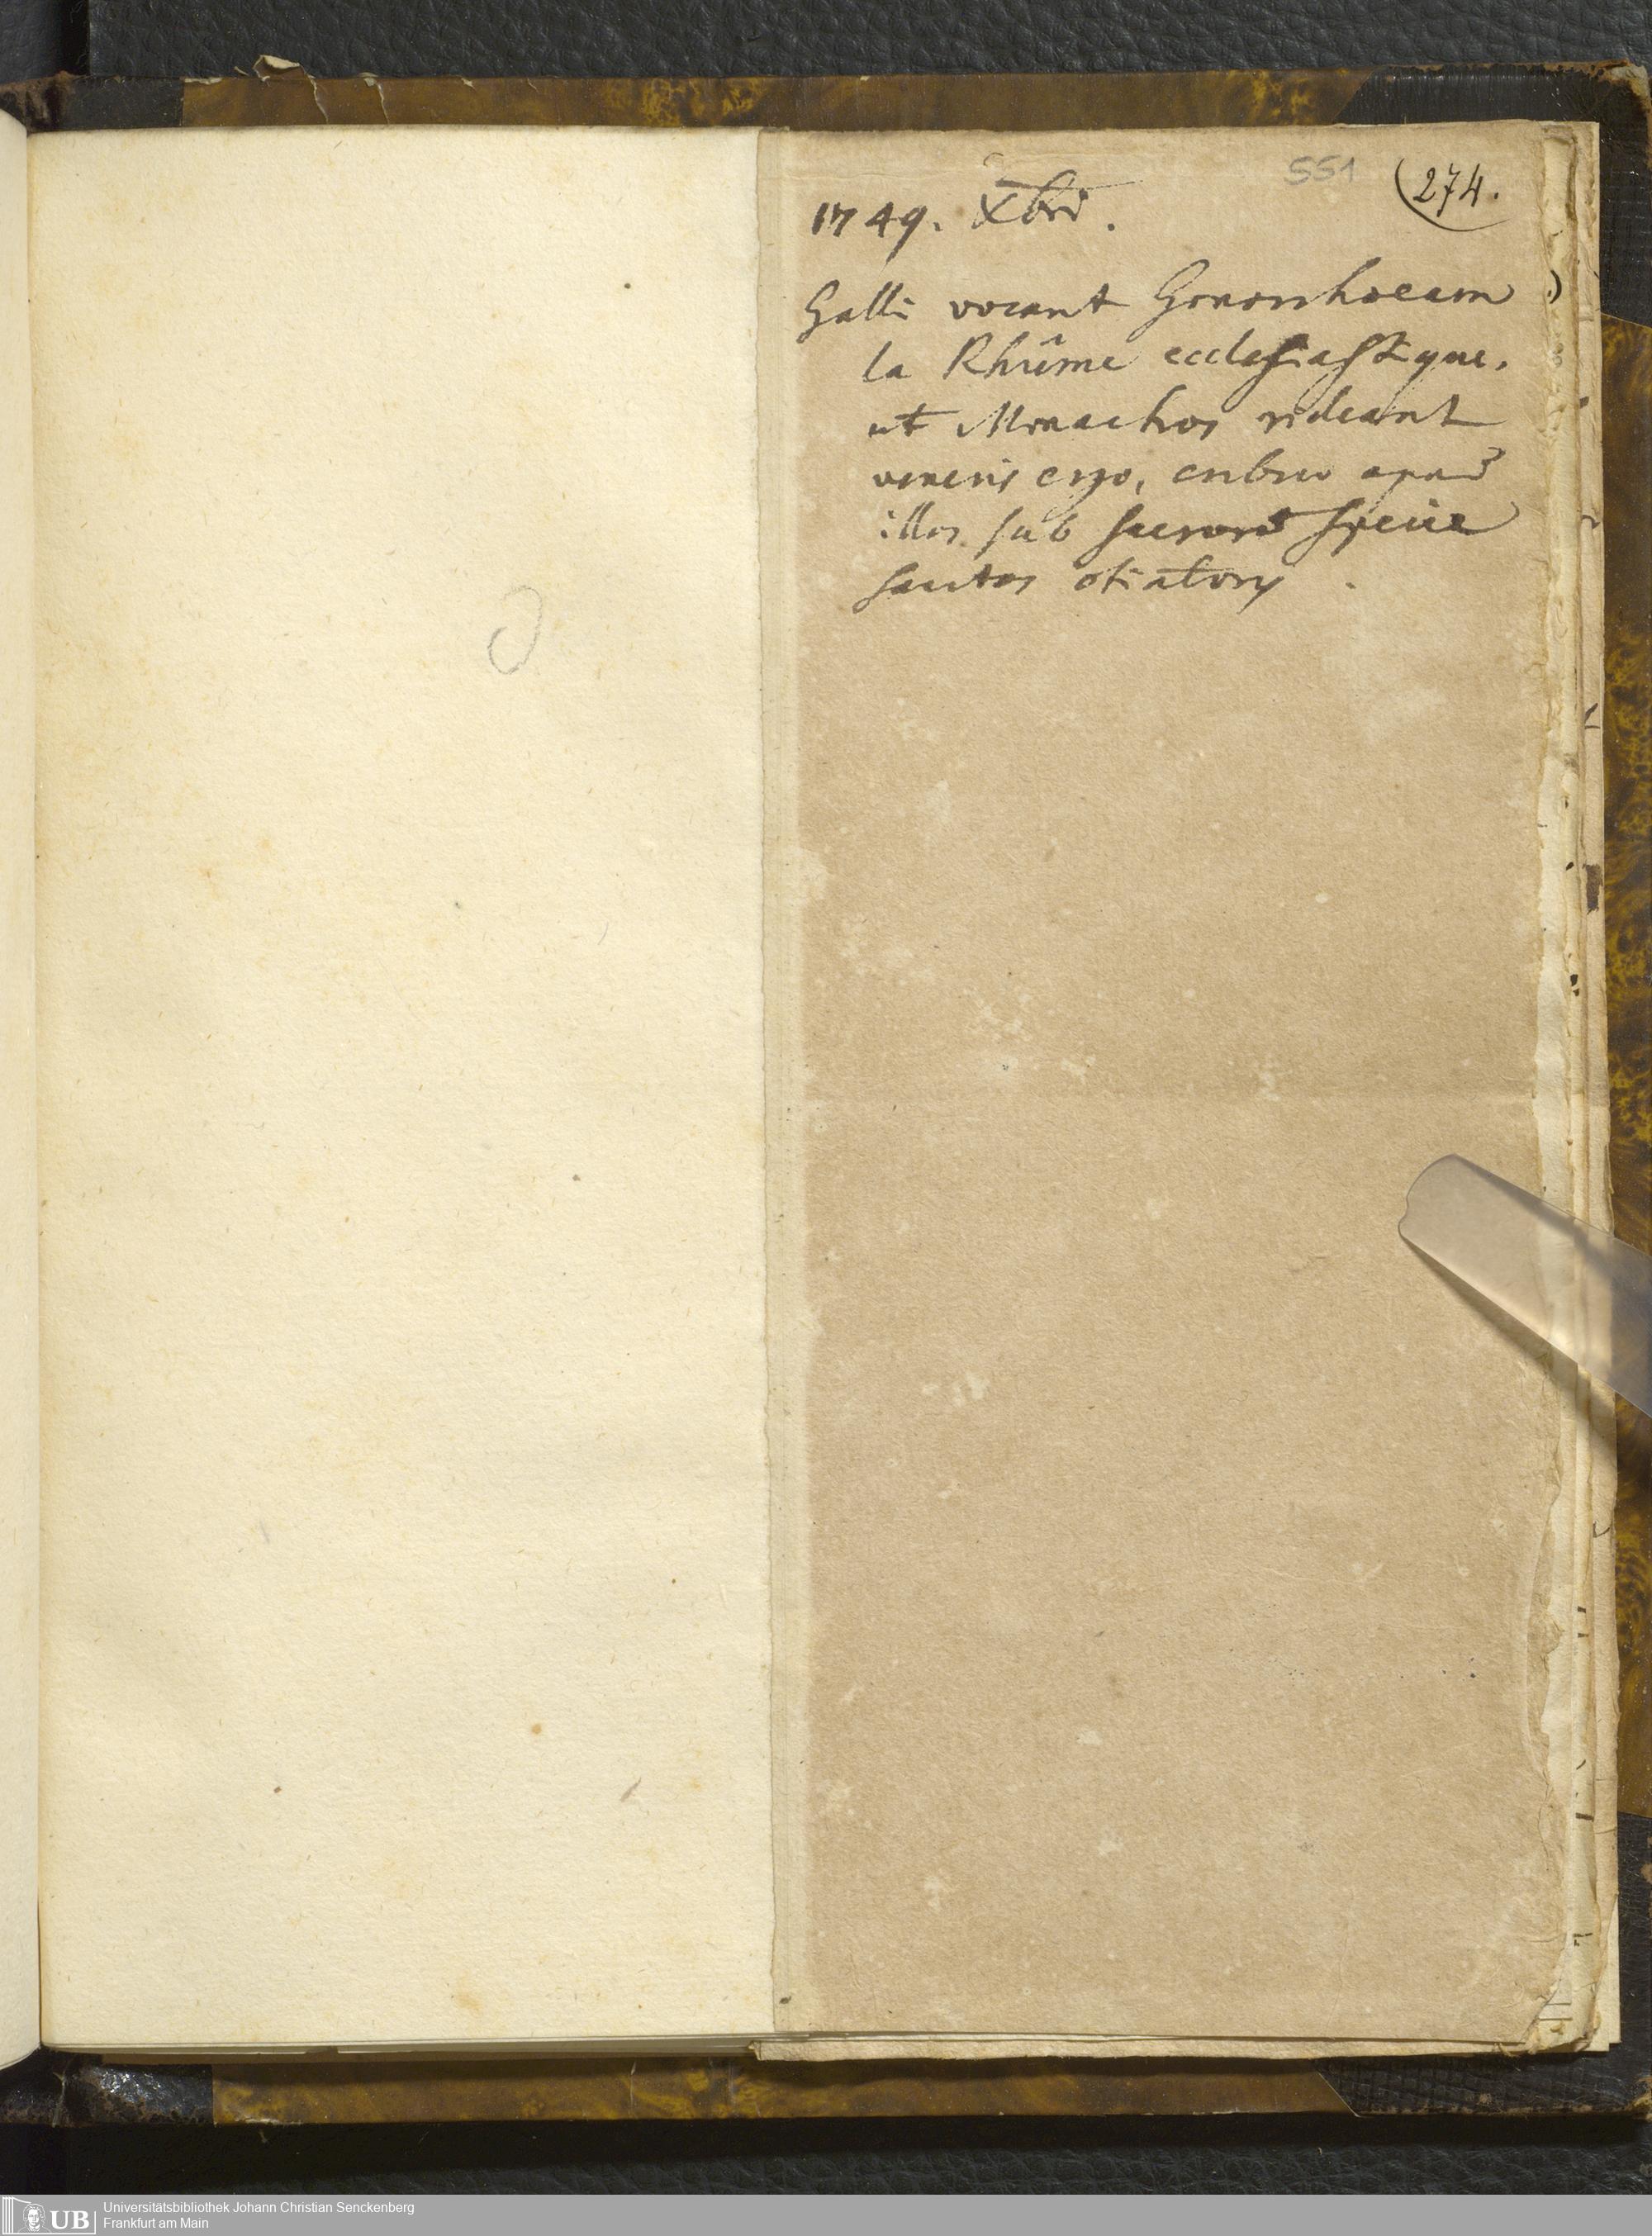 551 (274.
1749. Xbri.
Galli vocant Gonorrhoeam
la Rhûme ecclesiastique,
ut Monachos rideant
veneris ergo, crebro apud
illos sub sacrorum specie
otiatorum
UB Universitätsbibliothek Johann Christian Senckenberg
Frankfurt am Main